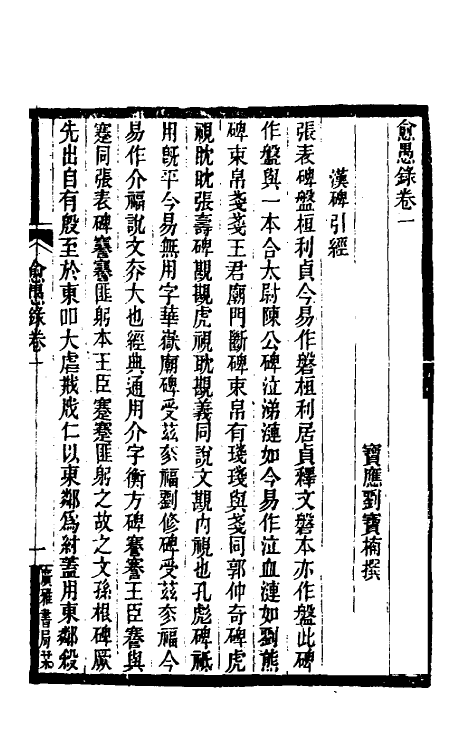 愈愚錄卷一
寶應劉寶楠撰
漢碑引經
張表碑盤桓利貞今易作磐桓利居貞釋文磐本亦作盤此碑
作盤與一本合太尉陳公碑泣涕漣如今易作泣血漣如劉熊
碑束帛戔戔王君廟門斷碑束帛有琖琖與戔同郭仲奇碑虎
視眈眈張壽碑覾覾虎視眈覾義同說文覾內視也孔彪碑祗
用旣平今易無用字華嶽廟碑受兹夰福劉修碑受兹夰福今
易作介福說文夰大也經典通用介字衡方碑謇謇王臣謇與
蹇同張表碑謇謇匪躬本王臣蹇蹇匪躬之故之文孫根碑厥
先出自有殷至於東叩大虐戕戕仁以東鄰爲紂蓋用東鄰殺
愈愚錄卷一
一
廣雅書局栞